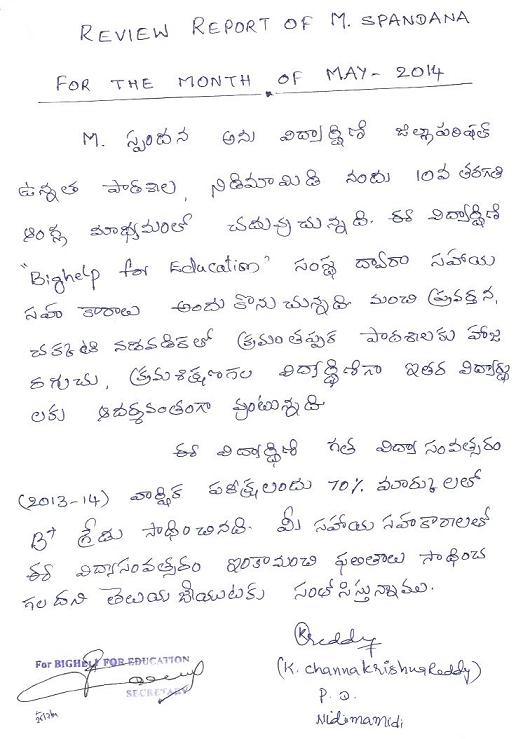 REVIEW REPORT OF M. SPANDANA
FOR THE MONTH OF MAY- 2014
M. స్పందన అను విద్యార్థిణి జిల్లాపరిషత్
ఉన్నత పాఠశాల, నిడిమామిడి నందు 10వ తరగతి
ఆంగ్ల మాధ్యమంలో చదువుచున్నది. ఈ విద్యార్థిణి
"Bighelp for Education" సంస్థ ద్వారా సహాయ
సహకారాలు అందుకొనుచున్నది. మంచి ప్రవర్తన,
చక్కటి నడవడికలో క్రమంతప్పక పాఠశాలకు హాజ
రగుచు, క్రమశిక్షణగల విద్యార్థిణిగా ఇతర విద్యార్థు
లకు ఆదర్శవంతంగా వుంటున్నది
ఈ విద్యార్థిణి గత విద్యా సంవత్సరం
(2013-14) వార్షిక పరీక్షలందు 70% మార్కులతో
B+ గ్రేడు సాధించినది. మీ సహాయ సహకారాలతో
ఈ విద్యాసంవత్సరం ఇంకామంచి ఫలితాలు సాధించ
గలదని తెలియజేయుటకు సంతోసిస్తున్నాము.
KReddy
(K. ChannaKrishnaReddy)
P. D.
Nidimamidi
For BIGHELP FOR EDUCATION
SECRETARY